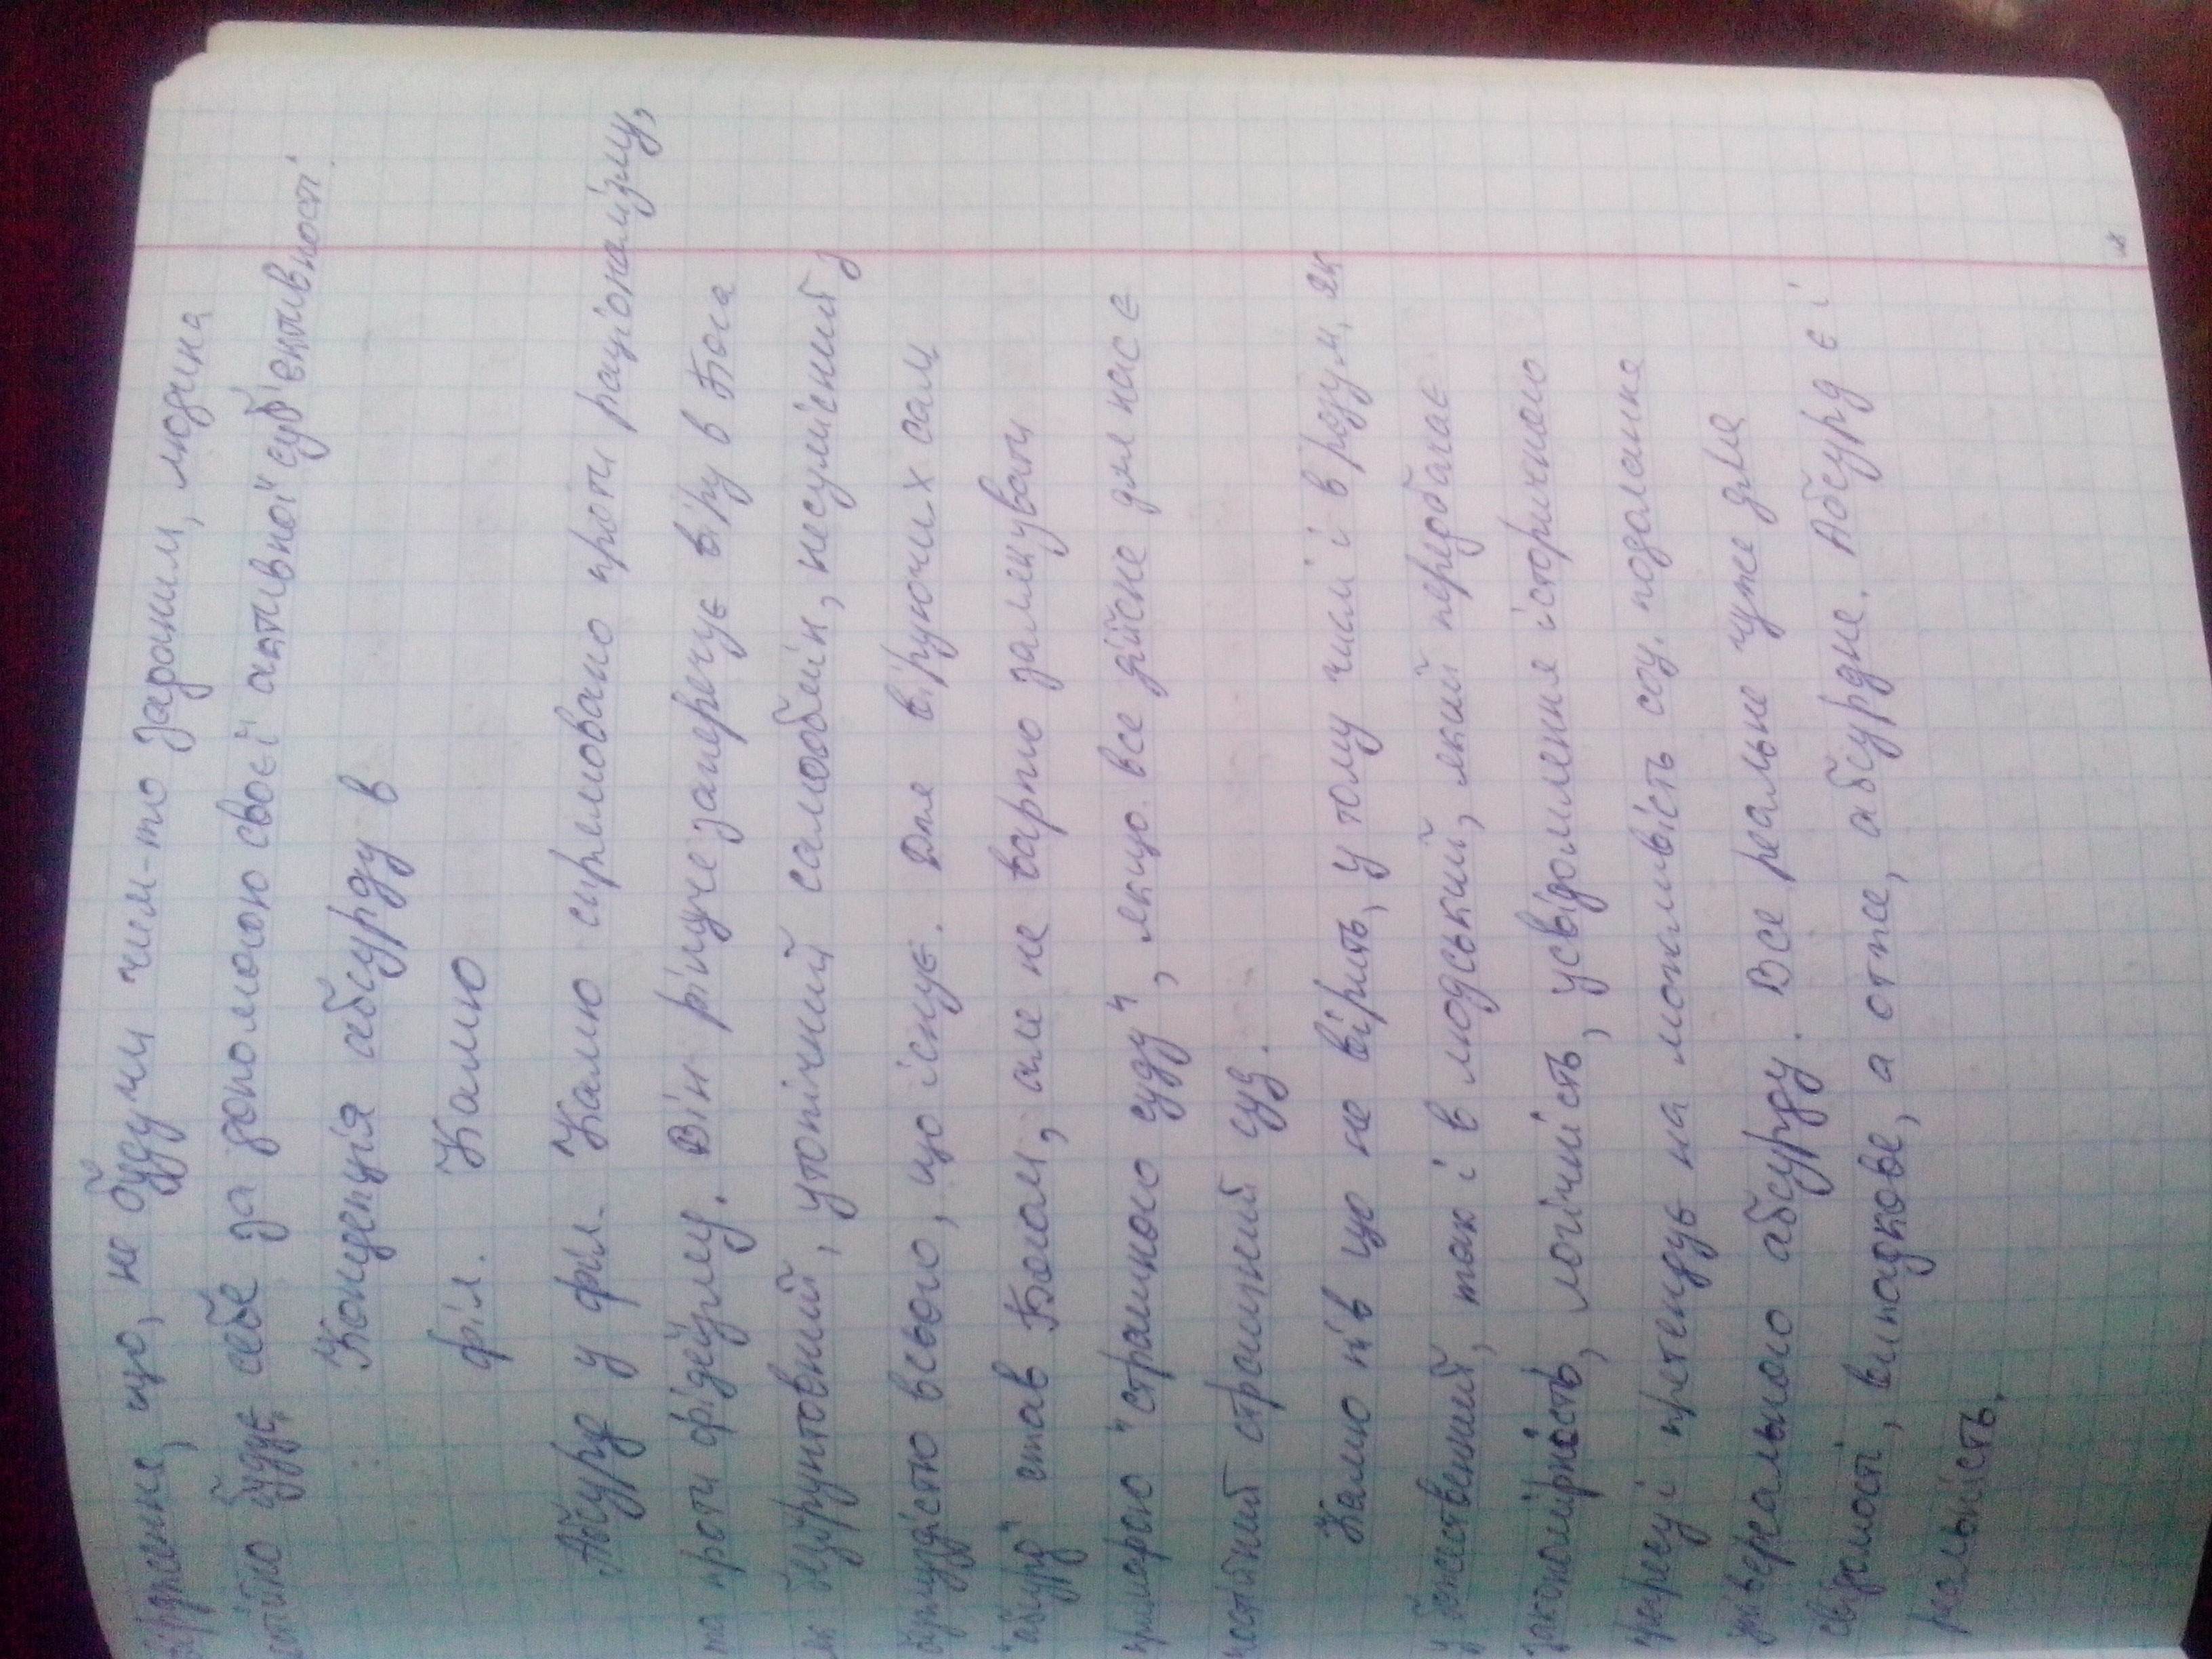 що, не будучи чим-то заданим, людина
будує себе за допомогою своєї активної суб'єктивності.
Концепція абсурду в
філ. Камю
Абсурд у філ. Камю спрямовано проти раціоналізму,
та проти фідеїзму. Він рішуче заперечує віру в Бога
як безґрунтовний, утопічний самообман, несумісний з
всього, що існує. Для віруючих сам
"абсурд" став Богом, але не варто залякувати
примарою "страшного суду", якщо все дійсне для нас є
постійний страшний суд.
Камю ні в що не вірить, у тому числі і в розум, як
у божественний, так і в людський, який передбачає
закономірність, логічність, усвідомлення історичного
прогресу і претендує на можливість соц. подолання
універсального абсурду. Все реальне чуже для
свідомості, випадкове, а отже, абсурдне. Абсурд є і
реальність.